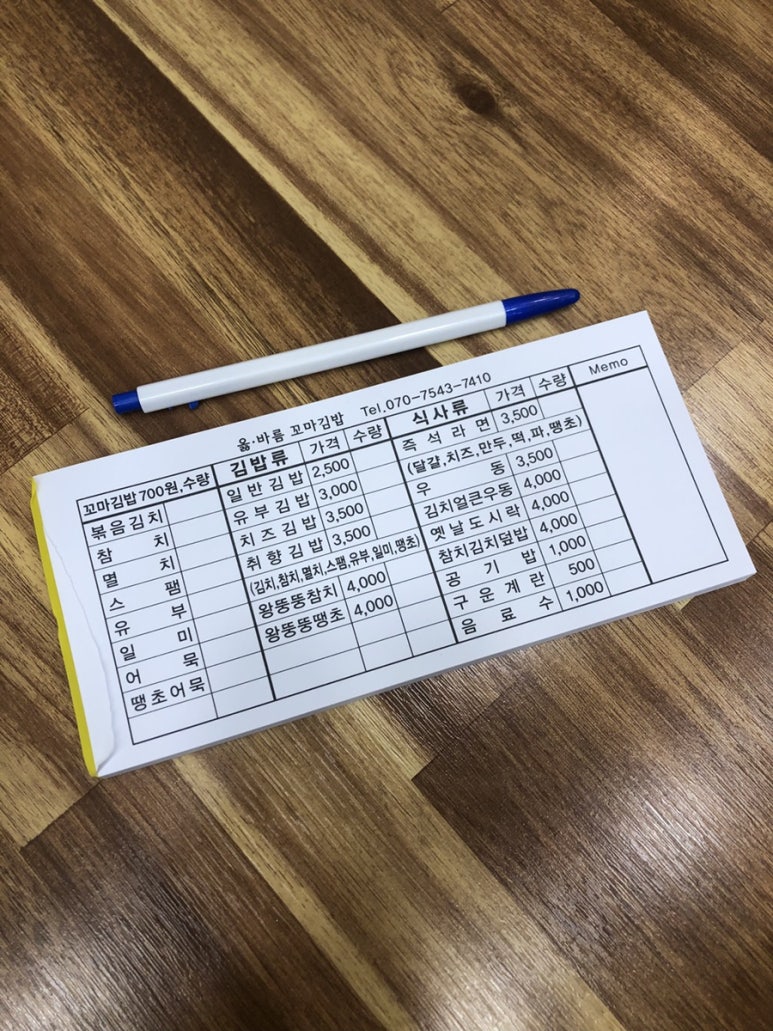 옳·바름 꼬마김밥 Tel.070-7543-7410
꼬마김밥 700원, 수량
볶음김치
참 치
멸 치
스 팸
유 부
일 미
어 묵
땡초어묵
김밥류 가격 수량
일반김밥 2,500
유부김밥 3,000
치즈김밥 3,500
취향김밥 3,500
(김치,참치,멸치,스팸,유부,일미,땡초)
왕뚱뚱참치 4,000
왕뚱뚱땡초 4,000
식사류 가격 수량
즉석라면 3,500
(달걀,치즈,만두,떡,파,땡초)
우 동 3,500
김치얼큰우동 4,000
옛날도시락 4,000
참치김치덮밥 4,000
공 기 밥 1,000
구운계란 500
음 료 수 1,000
Memo